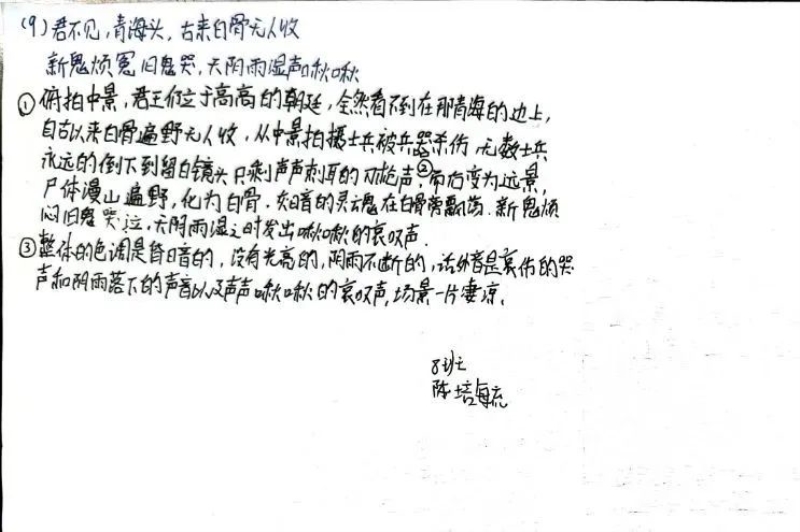 (9)君不见,青海头,古来白骨无人收
新鬼烦冤旧鬼哭,天阴雨湿声啾啾
①俯拍中景,君王伫立于高高的朝廷,全然看不到在那青海的边上,
自古以来白骨遍野无人收,从中景拍摄士兵被兵器杀伤 无数士兵
永远的倒下到留白镜头只剩声声刺耳的刀枪声,②而后变为远景,
尸体漫山遍野,化为白骨.灰暗的灵魂在白骨旁飘荡.新鬼烦
闷旧鬼哭泣,天阴雨湿之时发出啾啾的哀叹声.
③整体的色调是昏暗的,没有光亮的,阴雨不断的,话外音是哀伤的哭
声和阴雨落下的声音以及声声啾啾的哀叹声,场景一片凄凉.
8班
陈培毓